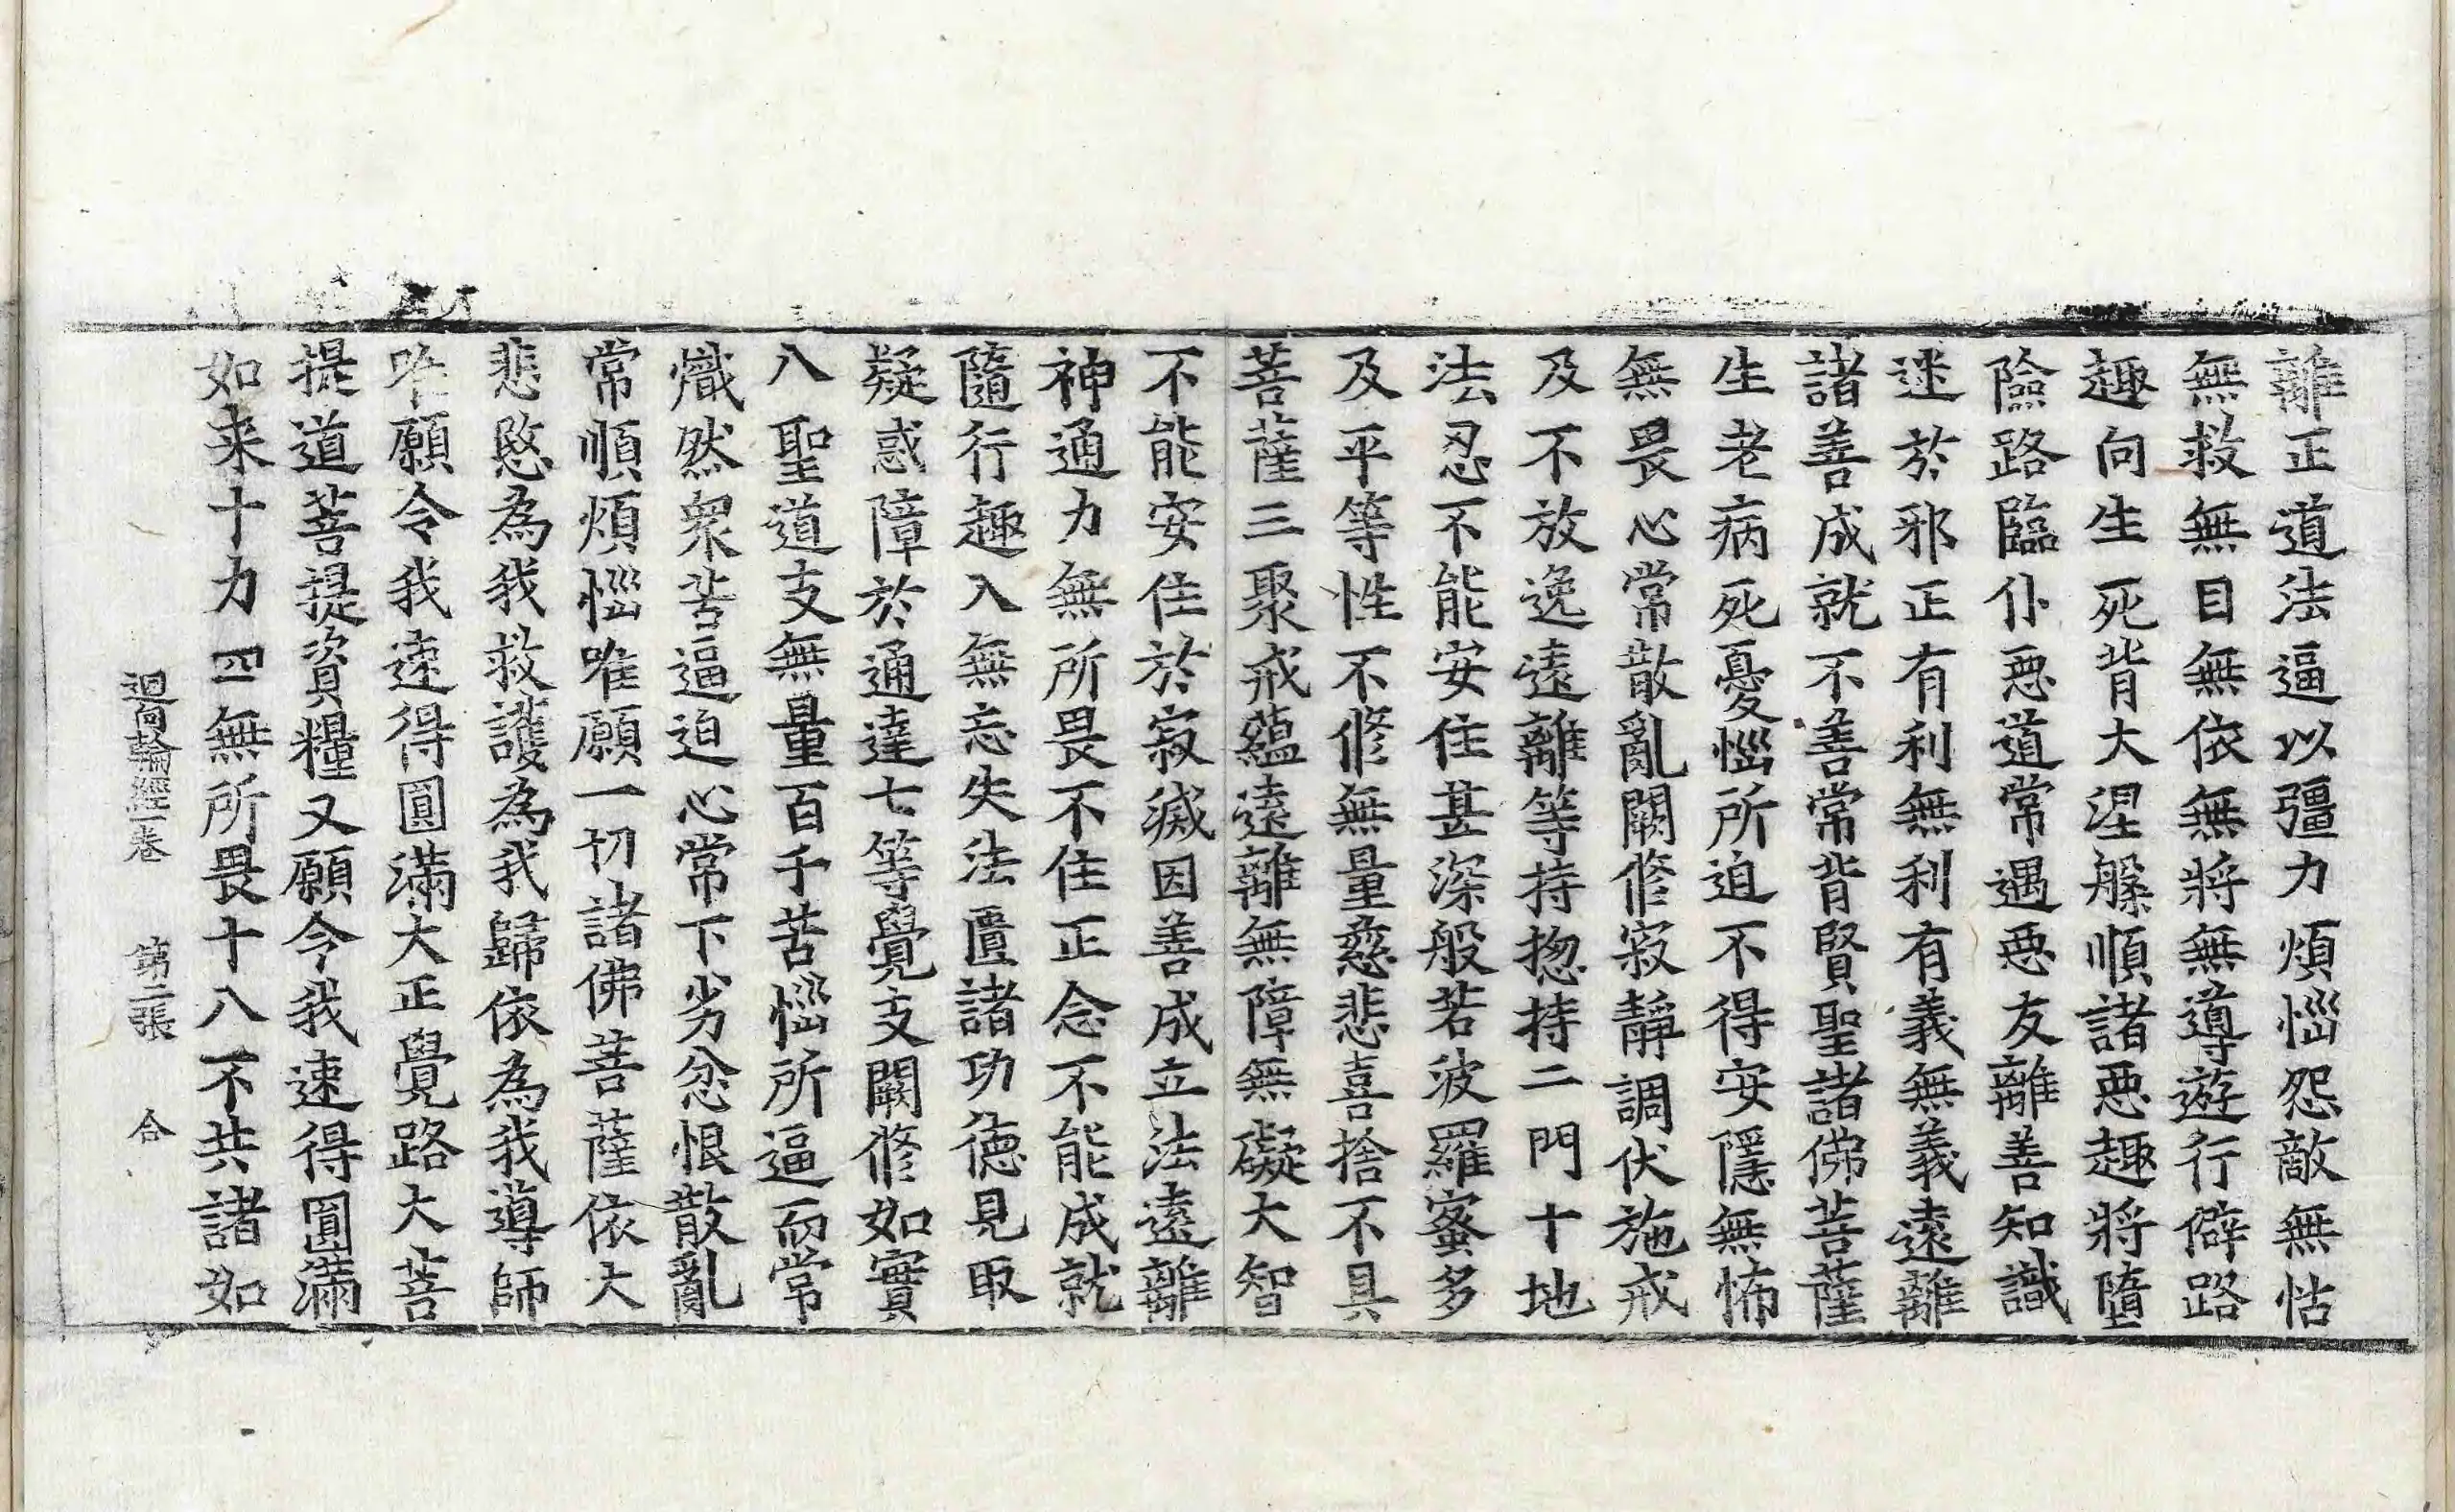 離正道法逼以彊力煩惱怨敵無怙
無救無目無依無將無導遊行僻路
趣向生死背大涅槃順諸惡趣將墮
險路臨仆惡道常遇惡友離善知識
迷於邪正有利無利有義無義遠離
諸善成就不善常背賢聖諸佛菩薩
生老病死憂惱所迫不得安隱無怖
無畏心常散亂闕修寂靜調伏施戒
及不放逸遠離等持揔持二門十地
法忍不能安住甚深般若波羅蜜多
及平等性不修無量慈悲喜捨不具
菩薩三聚戒蘊遠離無障無礙大智
不能安住於寂滅因善成立法遠離
神通力無所畏不住正念不能成就
隨行趣入無忘失法匱諸功德見取
疑惑障於通達七等覺支闕修如實
八聖道支無量百千苦惱所逼而常
熾然衆苦逼迫心常下劣忿恨散亂
常順煩惱唯願一切諸佛菩薩依大
悲愍為我救護為我歸依為我導師
唯願令我速得圓滿大正覺路大菩
提道菩提資糧又願令我速得圓滿
如来十力四無所畏十八不共諸如
迴向輪經一卷　第二張　合